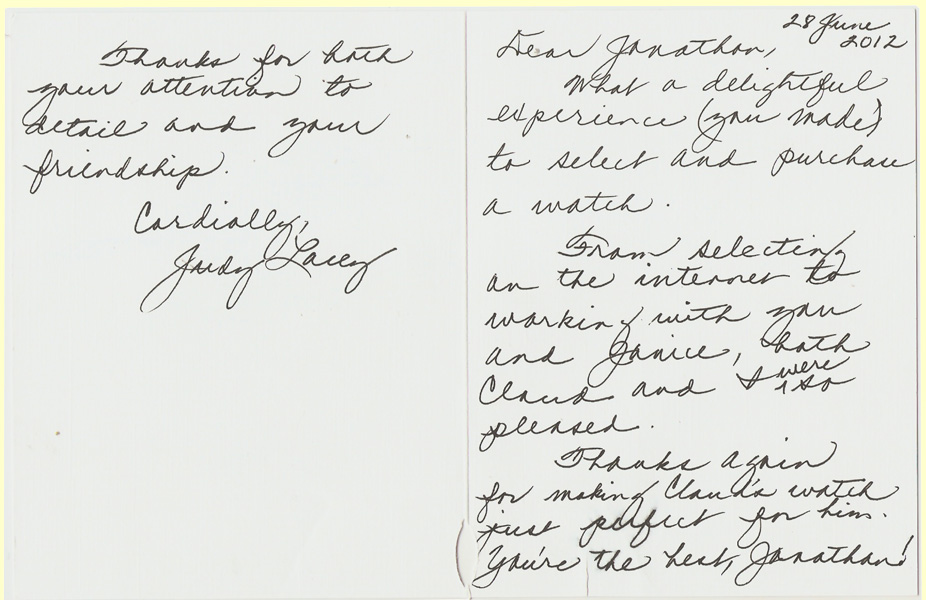 28 June
2012
Dear Jonathan,
What a delightful
experience (you made)
to select and purchase
a watch.
From selecting
on the internet to
working with you
and Janice, both
Claud and I were so
pleased.
Thanks again
for making Claud's watch
just perfect for him.
You're the best, Jonathan!
Thanks for both
your attention to
detail and your
friendship.
Cordially,
Judy Lacey